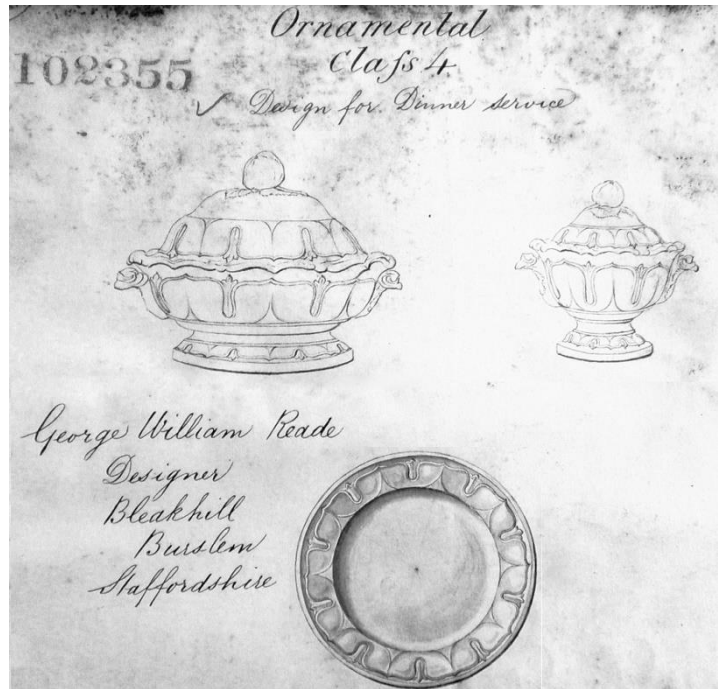 Ornamental
Claſs 4
102355
✓ Design for Dinner service
George William Reade
Designer
Bleakhill
Burslem
Staffordshire